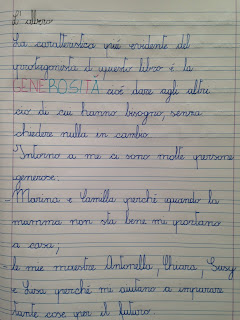 L'albero
La caratteristica più evidente del
protagonista di questo libro è la
GENEROSITÀ, cioè dare agli altri
ciò di cui hanno bisogno, senza
chiedere nulla in cambio.
Intorno a me ci sono molte persone
generose:
- Marina e Camilla perché quando la
mamma non sta bene me portano
a casa;
- le mie maestre Antonella, Chiara, Susy
e Lusa perché mi aiutano a imparare
tante cose per il futuro.